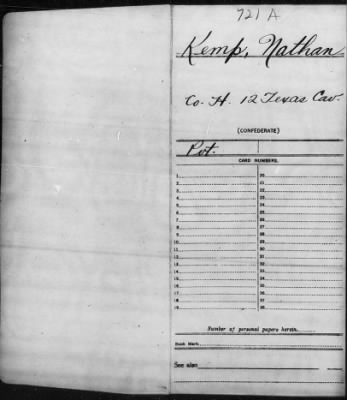 721 A
Kemp, Nathan
Co. H. 12 Texas Cav.
(CONFEDERATE)
Pvt.
CARD NUMBERS.
1 20
2 21
3 22
4 23
5 24
6 25
7 26
8 27
9 28
10 29
11 30
12 31
13 32
14 33
15 34
16 35
17 36
18 37
19 38
Number of personal papers herein
Book Mark:
See also